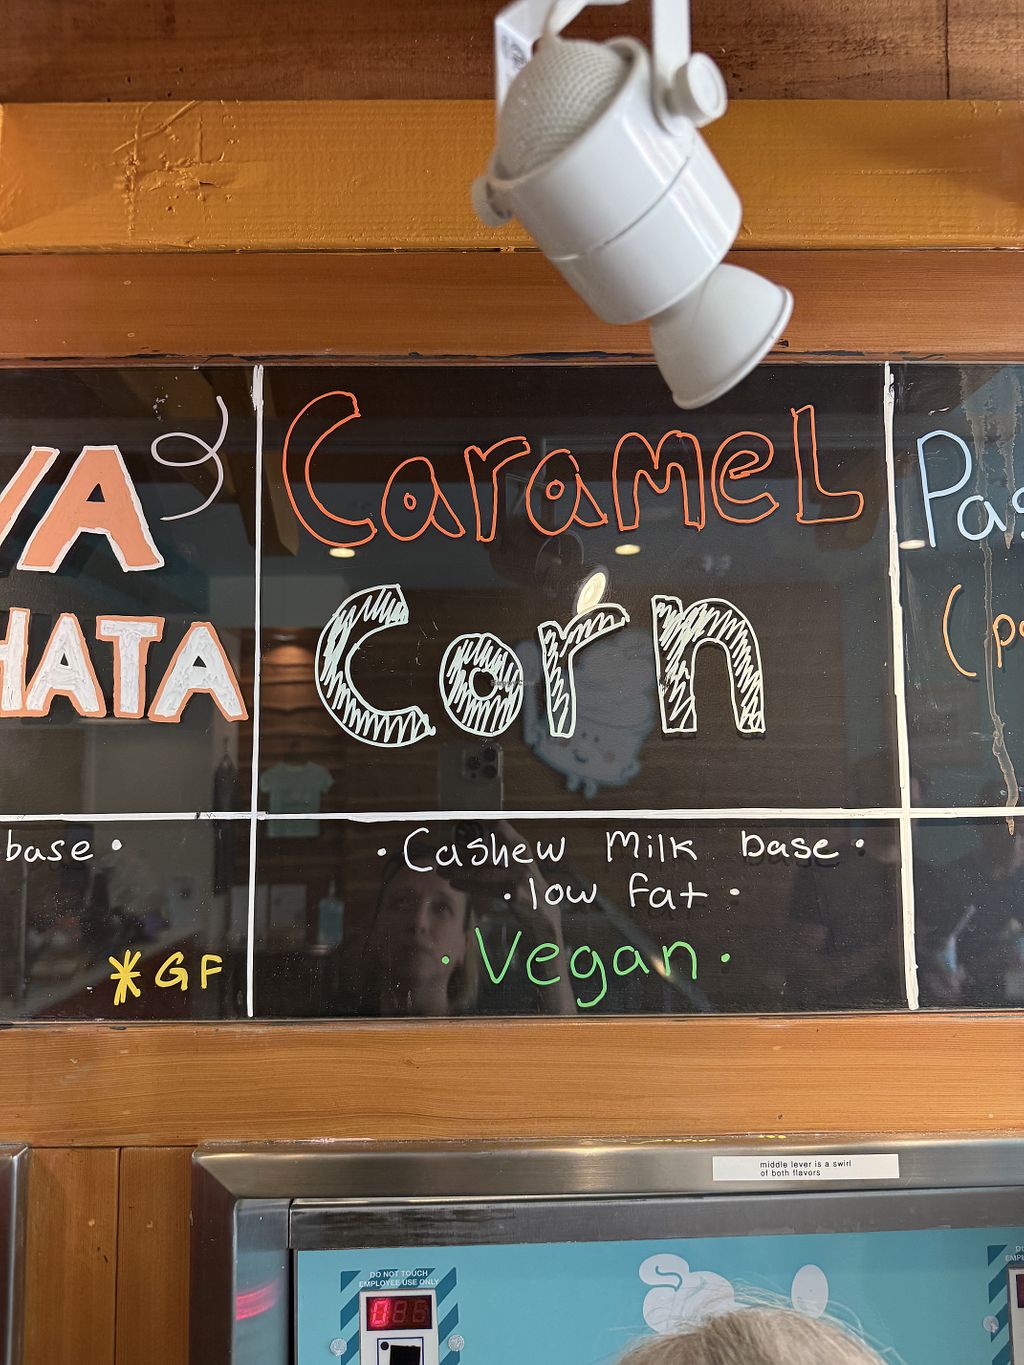 VA
HATA
base •
*GF
Caramel
Corn
• Cashew Milk base •
• low fat •
• Vegan •
Pas
(pa
middle lever is a swirl
of both flavors
DO NOT TOUCH
EMPLOYEE USE ONLY